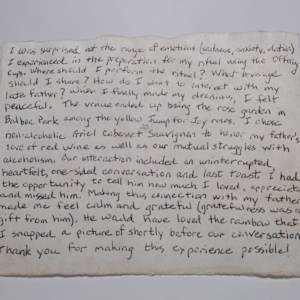 I was surprised at the range of emotions (sadness, anxiety, elation)
I experienced in the preparation for my ritual using the offering
cups. Where should I perform the ritual? What beverage
should I share? How do I want to interact with my
late father? When I finally made my decisions, I felt
peaceful. The venue ended up being the rose garden in
Balboa Park among the yellow Jump for Joy roses. I chose
non-alcoholic Ariel Cabernet Sauvignon to honor my father's
love of red wine as well as our mutual struggles with
alcoholism. Our interaction included an uninterrupted,
heartfelt, one-sided conversation and last toast. I had
the opportunity to tell him how much I loved, appreciated
and missed him. Making this connection with my father
made me feel calm and grateful (gratefulness was a
gift from him). He would have loved the rainbow that
I snapped a picture of shortly before our conversation.
Thank you for making this experience possible!